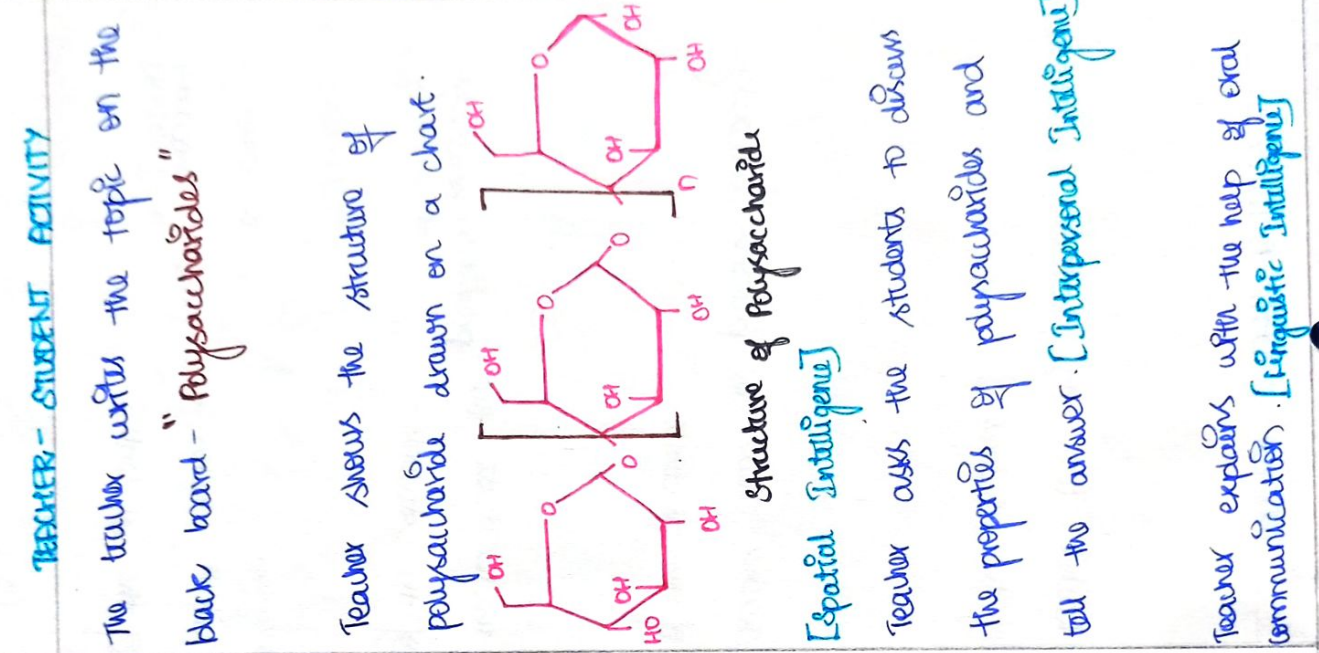 TEACHER - STUDENT ACTIVITY
The teacher writes the topic on the
black board - "Polysaccharides"
Teacher shows the structure of
polysaccharide drawn on a chart.
OH OH OH
O O O
OH O OH O OH OH
HO OH OH n OH
Structure of Polysaccharide
[Spatial Intelligence]
Teacher asks the students to discuss
the properties of polysaccharides and
tell the answer. [Interpersonal Intelligence]
Teacher explains with the help of oral
communication. [Linguistic Intelligence]